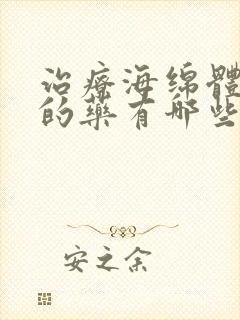 治疗海绵體
的藥有哪些
安之余